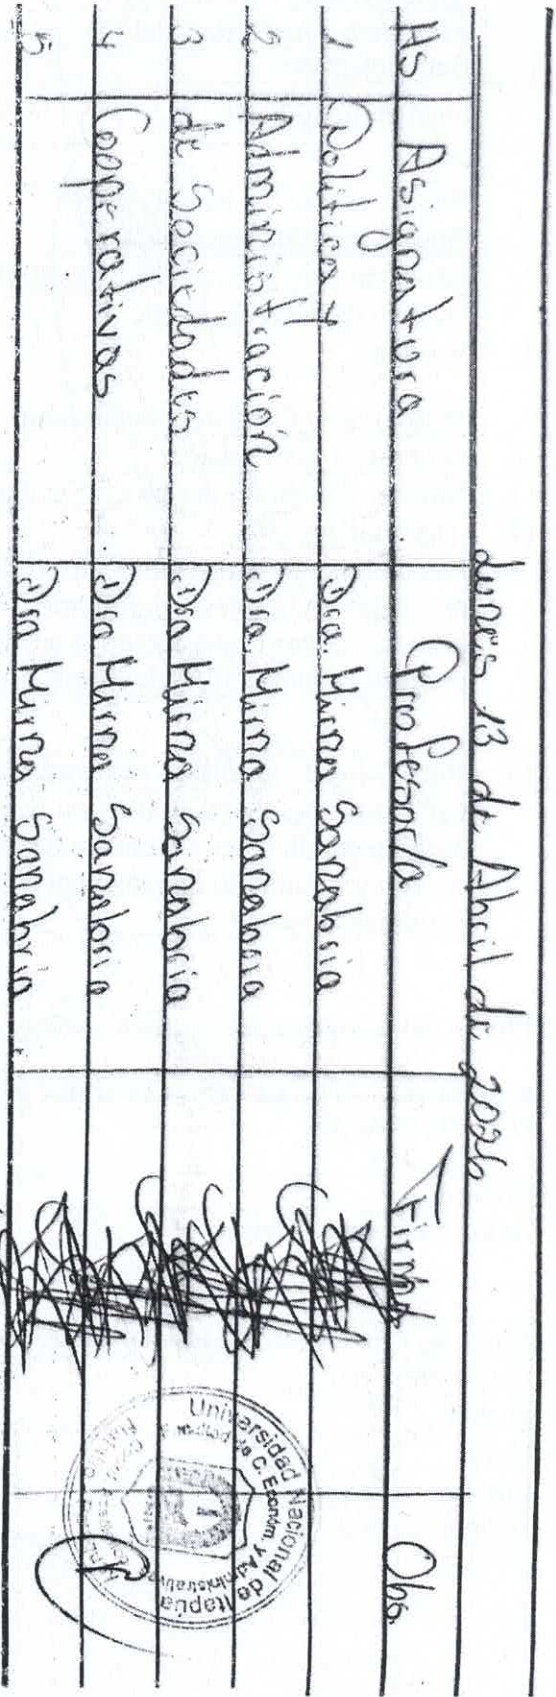 Lunes 13 de Abril de 2026
Hs Asignatura Profesor/a Firma Obs.
1 Política y Dra. Mirna Sanabria
2 Administración Dra. Mirna Sanabria
3 de Sociedades Dra Mirna Sanabria
4 Cooperativas Dra Mirna Sanabria
5 Dra Mirna Sanabria
Universidad Nacional de Itapúa
Facultad de C. Económ. y Administrativas